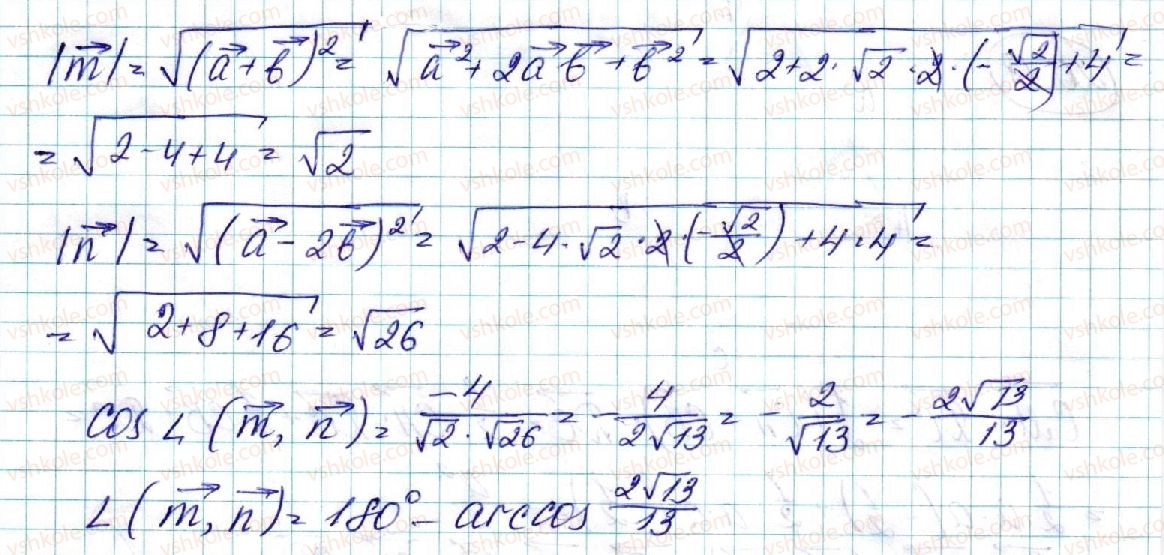 |m⃗| = √((a⃗ + b⃗)²) = √(a⃗² + 2a⃗b⃗ + b⃗²) = √(2 + 2 · √2 · 2 · (-√2/2) + 4) =
= √(2 - 4 + 4) = √2
|n⃗| = √((a⃗ - 2b⃗)²) = √(2 - 4 · √2 · 2 · (-√2/2) + 4 · 4) =
= √(2 + 8 + 16) = √26
cos ∠(m⃗, n⃗) = -4/(√2 · √26) = -4/(2√13) = -2/√13 = -2√13/13
∠(m⃗, n⃗) = 180° - arccos 2√13/13